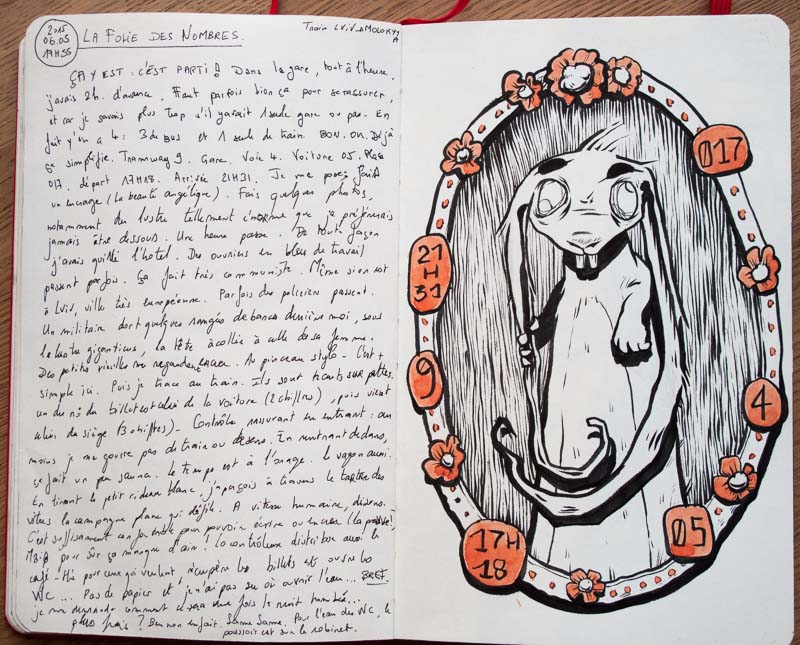 2015
06.05
17H55
LA FOLIE DES NOMBRES.
Train LVIV
ÇA Y EST : C'EST PARTI ! Dans la gare, tout à l'heure,
j'avais 2h. d'avance. Faut parfois bien ça pour se rassurer,
et car je savais plus trop s'il y avait 1 seule gare ou pas. En
fait y'en a 4 : 3 de bus et 1 seule de train. BON. OK. Déjà
ça simplifie. Tramway 9. Gare. Voie 4. Voiture 05. Place
017. départ 17H18. Arrivée 21H31. Je me pose, finis
un encrage (La beauté angélique). Fais quelques photos,
notamment du lustre tellement énorme que je préfèrerais
jamais être dessous. Une heure passe. De toute façon
j'avais quitté l'hôtel. Des ouvriers en bleu de travail
passent parfois. Ça fait très communiste. Même si on est
à Lviv, ville très européenne. Parfois des policiers passent.
Un militaire dort quelques rangées de bancs derrière moi, sous
le lustre giganticus, la tête accolée à celle de sa femme.
Des petites vieilles me regardent encrer. Au pinceau stylo - C'est +
simple ici. Puis je fonce au train. Ils sont écrits sur
un des n° du billet est celui de la voiture (2 chiffres), puis vient
celui du siège (3 chiffres) - Contrôle rassurant en entrant : au
moins je me goure pas de train ou de sens. En rentrant dedans,
ça fait un peu sauna. Le temps est à l'orage. Le wagon aussi.
En tirant le petit rideau blanc, j'aperçois à travers le tartre des
vitres la campagne plane qui défile. A vitesse humaine, disons.
C'est suffisamment confortable pour pouvoir écrire ou encrer (la preuve !)
Mais pour sûr ça manque d'air ! La contrôleuse distribue aussi le
café-thé pour ceux qui veulent, récupère les billets et ouvre les
WC ... Pas de papier et j'n'ai pas su où ouvrir l'eau... BREF.
je me demande comment ce sera une fois la nuit tombée...
plus frais ? Ben non en fait. Sauna Sauna. Pour l'eau des WC, le
poussoir est sur le robinet.
017
21
H
31
9
4
05
17H
18